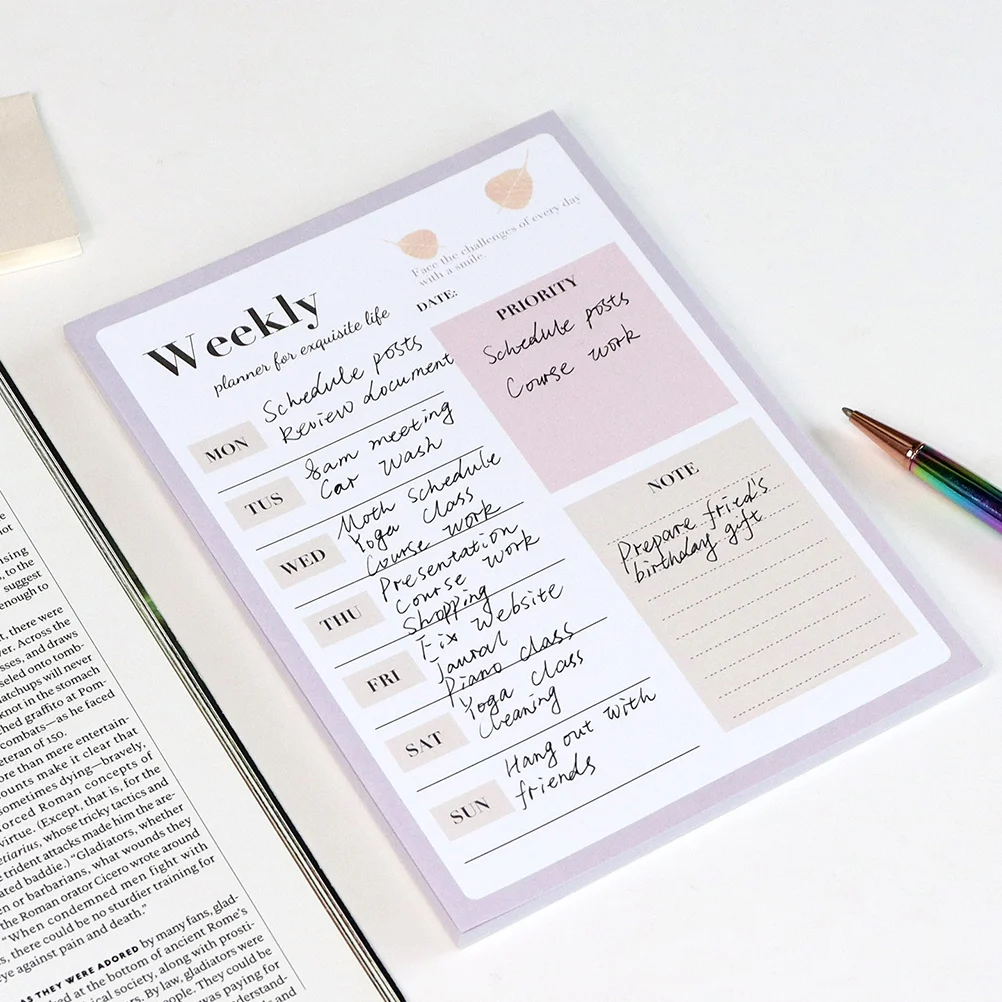 Weekly
planner for exquisite life
Face the challenges of every day
with a smile.
DATE:
MON
Schedule posts
Review document
TUS
8am meeting
Car wash
WED
Moth Schedule
Yoga class
Course work
THU
Presentation
Course work
Shopping
FRI
Fix Website
Jaural
Piano class
SAT
Yoga class
Cleaning
SUN
Hang out with
friends
PRIORITY
Schedule posts
Course work
NOTE
Prepare fried's
birthday gift
not
ising
, to the
suggest
enough to
t, there were
ver. Across the
sses, and draws
seled onto tomb-
atchups will never
knot in the stomach
d graffito at Pom-
combats—as he faced
eteran of 150.
ore than mere entertain-
ounts make it clear that
ometimes dying—bravely,
orced Roman concepts of
virtue. (Except, that is, for the
etiarius, whose tricky tactics and
trident attacks made him the are-
ated baddie.) "Gladiators, whether
n or barbarians, what wounds they
the Roman orator Cicero wrote around
"When condemned men fight with
s, there could be no sturdier training for
eye against pain and death."
AS THEY WERE ADORED by many fans, glad-
ked at the bottom of ancient Rome's
cical society, along with prosti-
rs. By law, gladiators were
people. They could be
was paying for
understand-
and